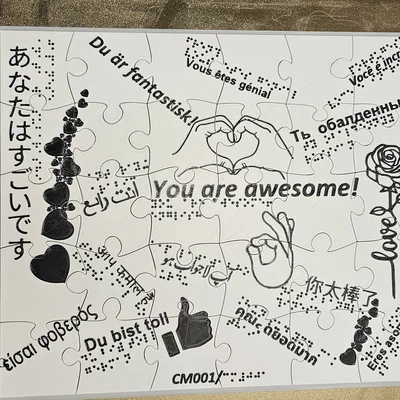 あなたはすごいです
Du är fantastisk!
Vous êtes génial
Você é incr
Ты обалденны
أنت رائع
You are awesome!
love
आप कमाल
你太棒了
είσαι φοβερός
Du bist toll
คุณ
Eres
CM001/